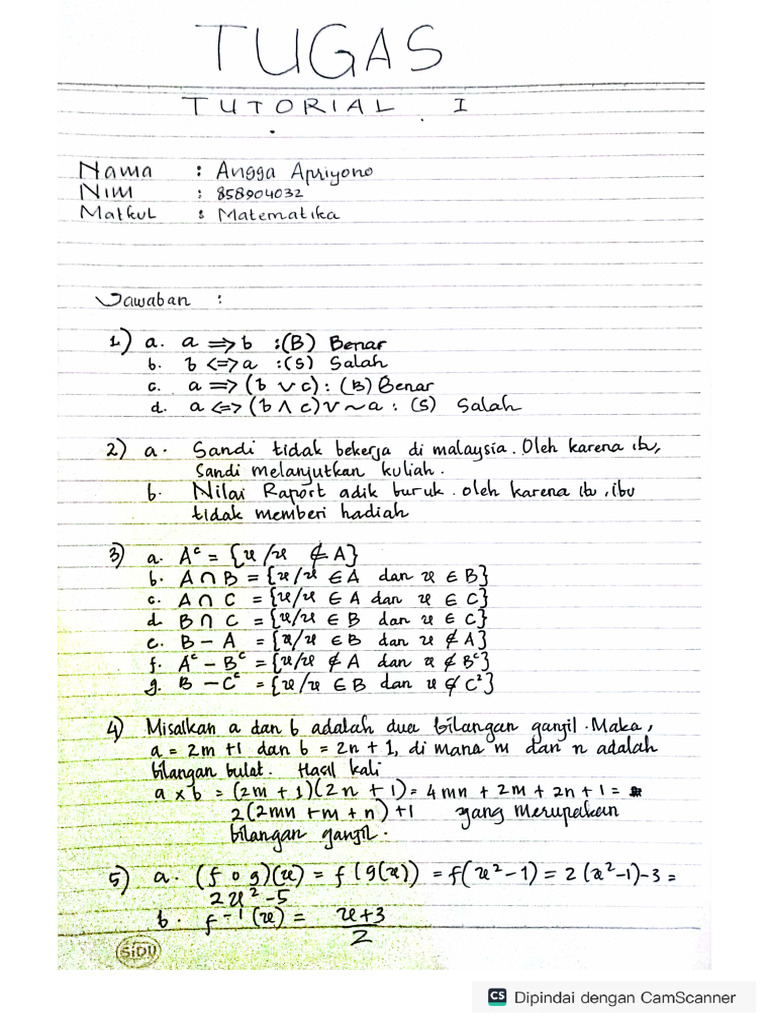 TUGAS
TUTORIAL I
Nama : Angga Apriyono
Nim : 858904032
Matkul : Matematika
Jawaban :
1) a. a => b : (B) Benar
b. b <=> a : (S) Salah
c. a => (b ∨ c) : (B) Benar
d. a <=> (b ∧ c) ∨ ~a : (S) Salah
2) a. Sandi tidak bekerja di malaysia. Oleh karena itu,
Sandi melanjutkan kuliah.
b. Nilai Raport adik buruk. oleh karena itu, ibu
tidak memberi hadiah
3) a. Aᶜ = {x/x ∉ A}
b. A ∩ B = {x/x ∈ A dan x ∈ B}
c. A ∩ C = {x/x ∈ A dan x ∈ C}
d. B ∩ C = {x/x ∈ B dan x ∈ C}
e. B - A = {x/x ∈ B dan x ∉ A}
f. Aᶜ - Bᶜ = {x/x ∉ A dan x ∉ Bᶜ}
g. B - Cᶜ = {x/x ∈ B dan x ∉ C²}
4) Misalkan a dan b adalah dua bilangan ganjil. Maka,
a = 2m + 1 dan b = 2n + 1, di mana m dan n adalah
bilangan bulat. Hasil kali
a x b = (2m + 1)(2n + 1) = 4mn + 2m + 2n + 1 =
2(2mn + m + n) + 1 yang merupakan
bilangan ganjil.
5) a. (f o g)(x) = f(g(x)) = f(x² - 1) = 2(x² - 1) - 3 =
2x² - 5
b. f⁻¹(x) = x + 3
2
SiDU
CS Dipindai dengan CamScanner